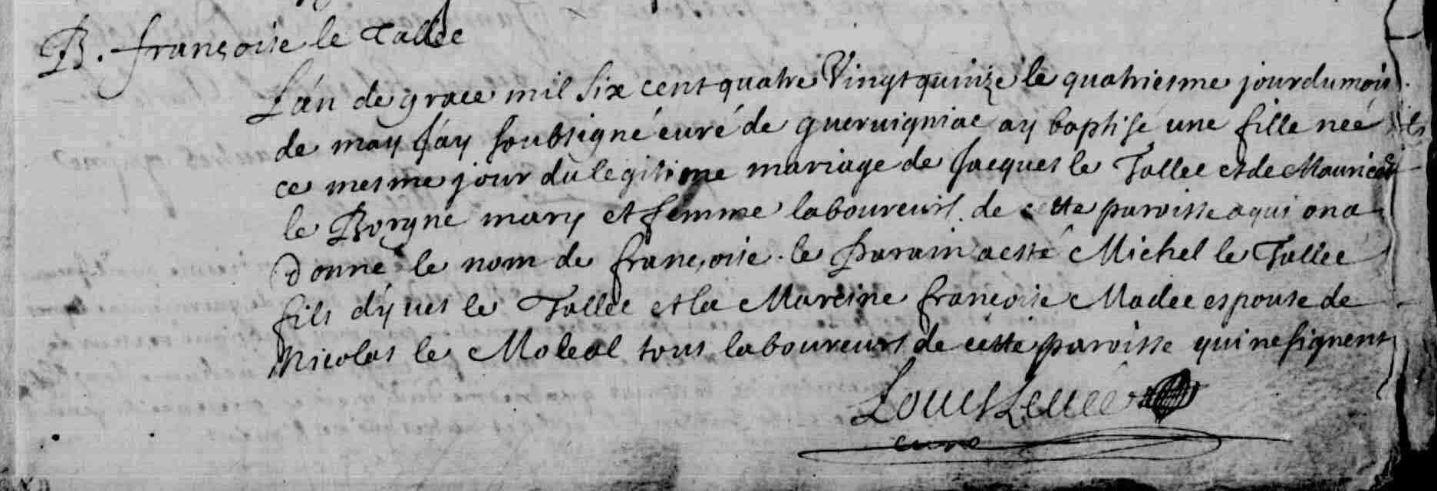 B. françoise le Tallec
L'an de grace mil six cent quatre Vingt quinze le quatriesme jour du mois
de may j'ay soubsigné curé de guervigniac ay baptisé une fille née
ce mesme jour du legitime mariage de Jacques le Tallec et de Mauricette
le Borgne mary et femme laboureurs de cette paroisse a qui on a
donné le nom de françoise. le Parain a esté Michel le Tallec
fils d'yves le Tallec et la Mareine francoise Madec espouse de
Nicolas le Moleal tous laboureurs de cette paroisse qui ne signent
curé